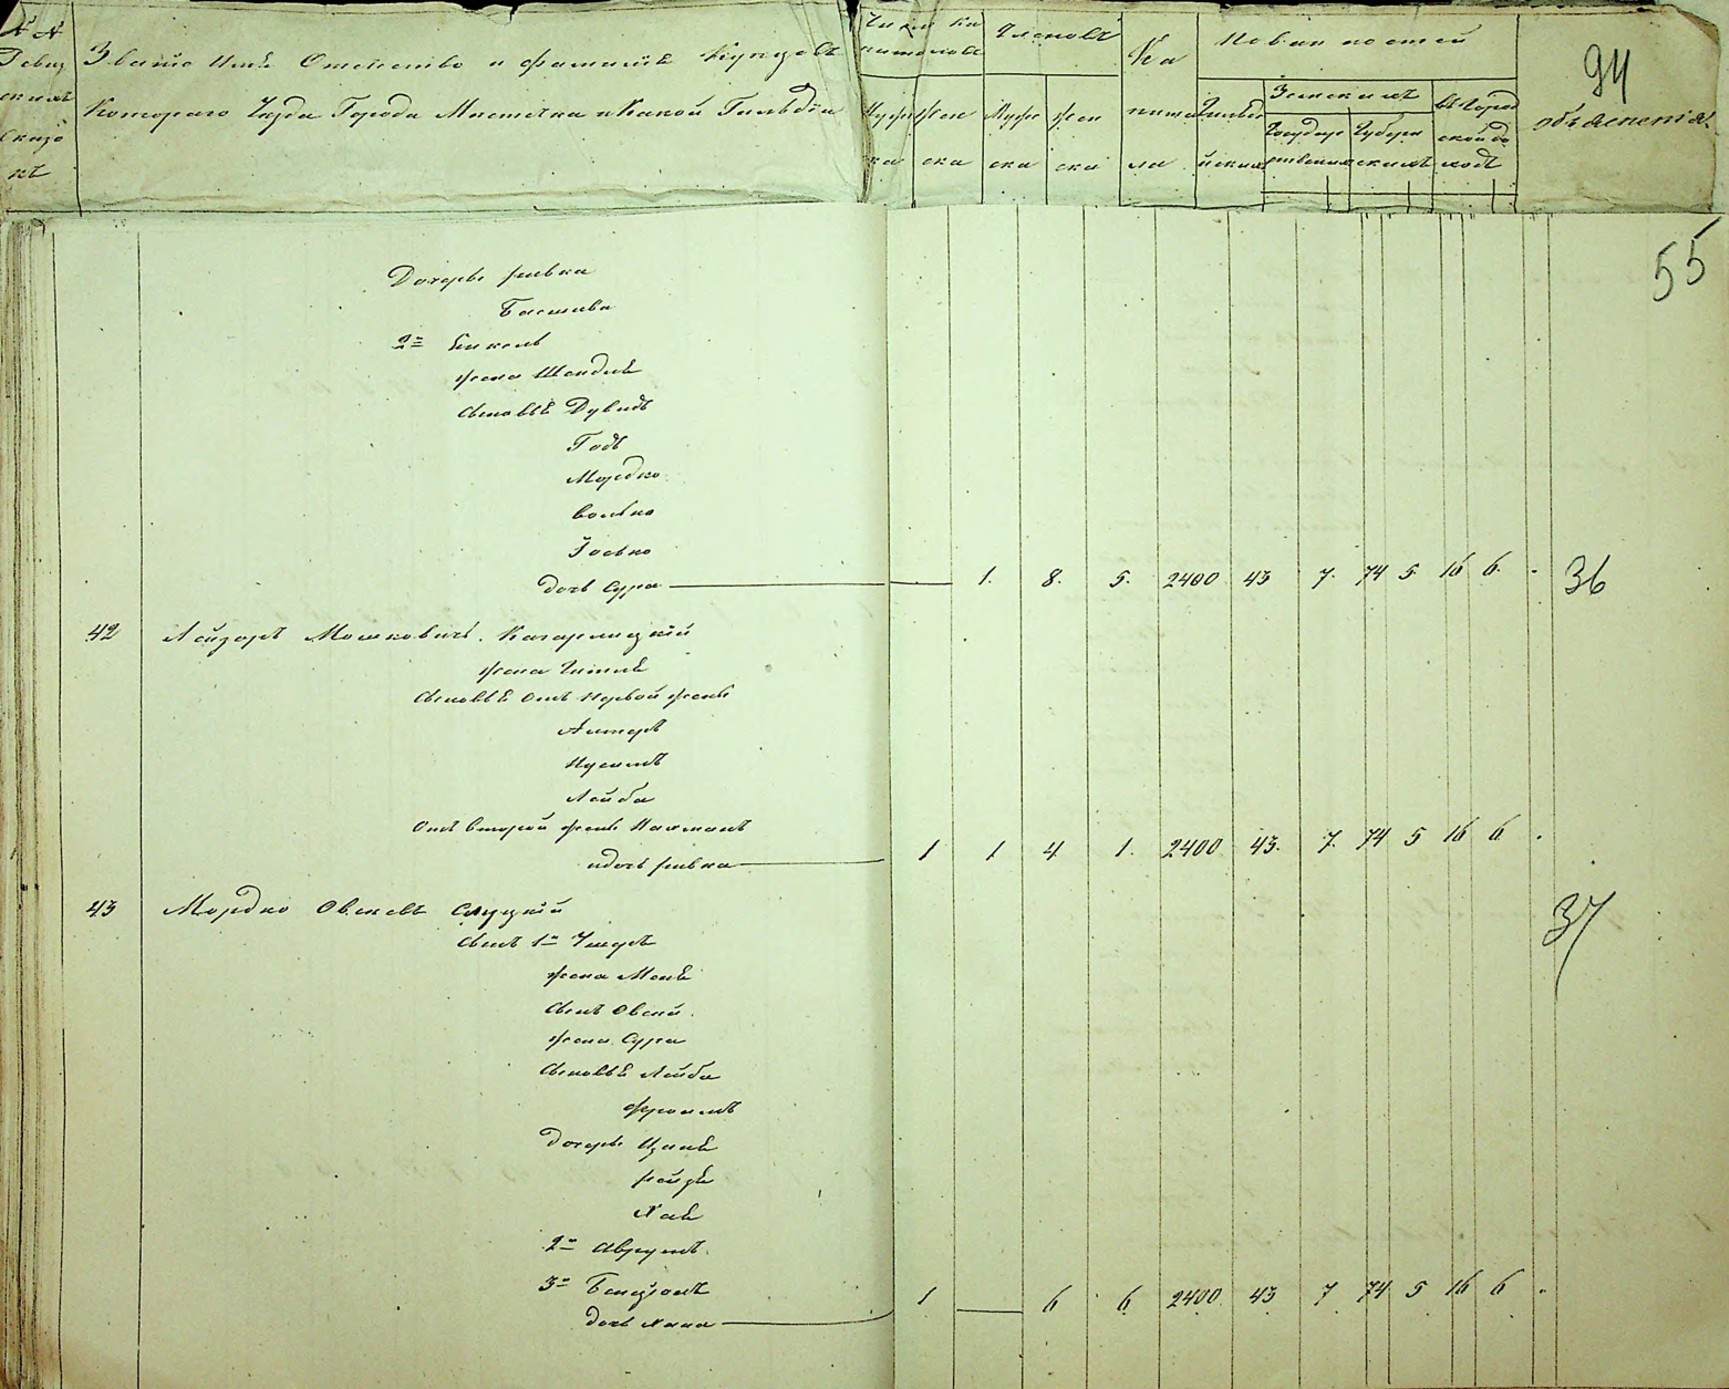 № №
Ревиз
скихъ
Сказо
къ
Званіе Имя Отчество и фамилія Купцовъ
Котораго Уезда Города Местечка и Какой Гильдіи
Число Ка
питаловъ
Мужс
ка
Жен
ска
Членовъ
Муже
ска
Жен
ска
Ка
пита
ла
Повинностей
Гильдей
йскихъ
Земскихъ
Государс
твенных
Губерн
скихъ
въ Город
ской до
ходъ
94
объясненія
55
Дочери Ривка
Басшива
2я
жена Шендля
сыновья Дувидъ
Годъ
Мордко
Волько
Іосько
дочь Сура 1. 8. 5. 2400 43 7. 74 5 16 6. 36
42 Лейзоръ Мошковичъ Кагарлицкій
жена Гитля
сыновья Отъ Первой жены
Алтеръ
Нусимъ
Лейба
Отъ Второй жены Нахманъ
и дочь Ривка 1 1 4 1. 2400 43. 7. 74 5 16 6
43 Мордко Овсеевъ Слуцкій
37
сынъ 1й Ушеръ
жена Меня
сынъ Овсей
жена Сура
сыновья Лейба
Фроимъ
дочери Ципя
Рейзя
Хая
2й Аврумъ
3й Бенціонъ
дочь Хана 1 6 6 2400 43 7 74 5 16 6